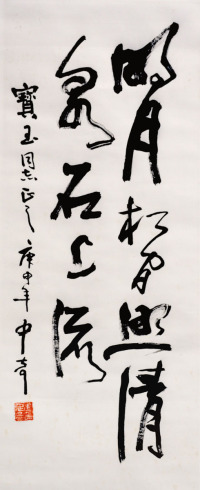 明月松間照清
泉石上流
寶玉同志正之 庚申年 中奇